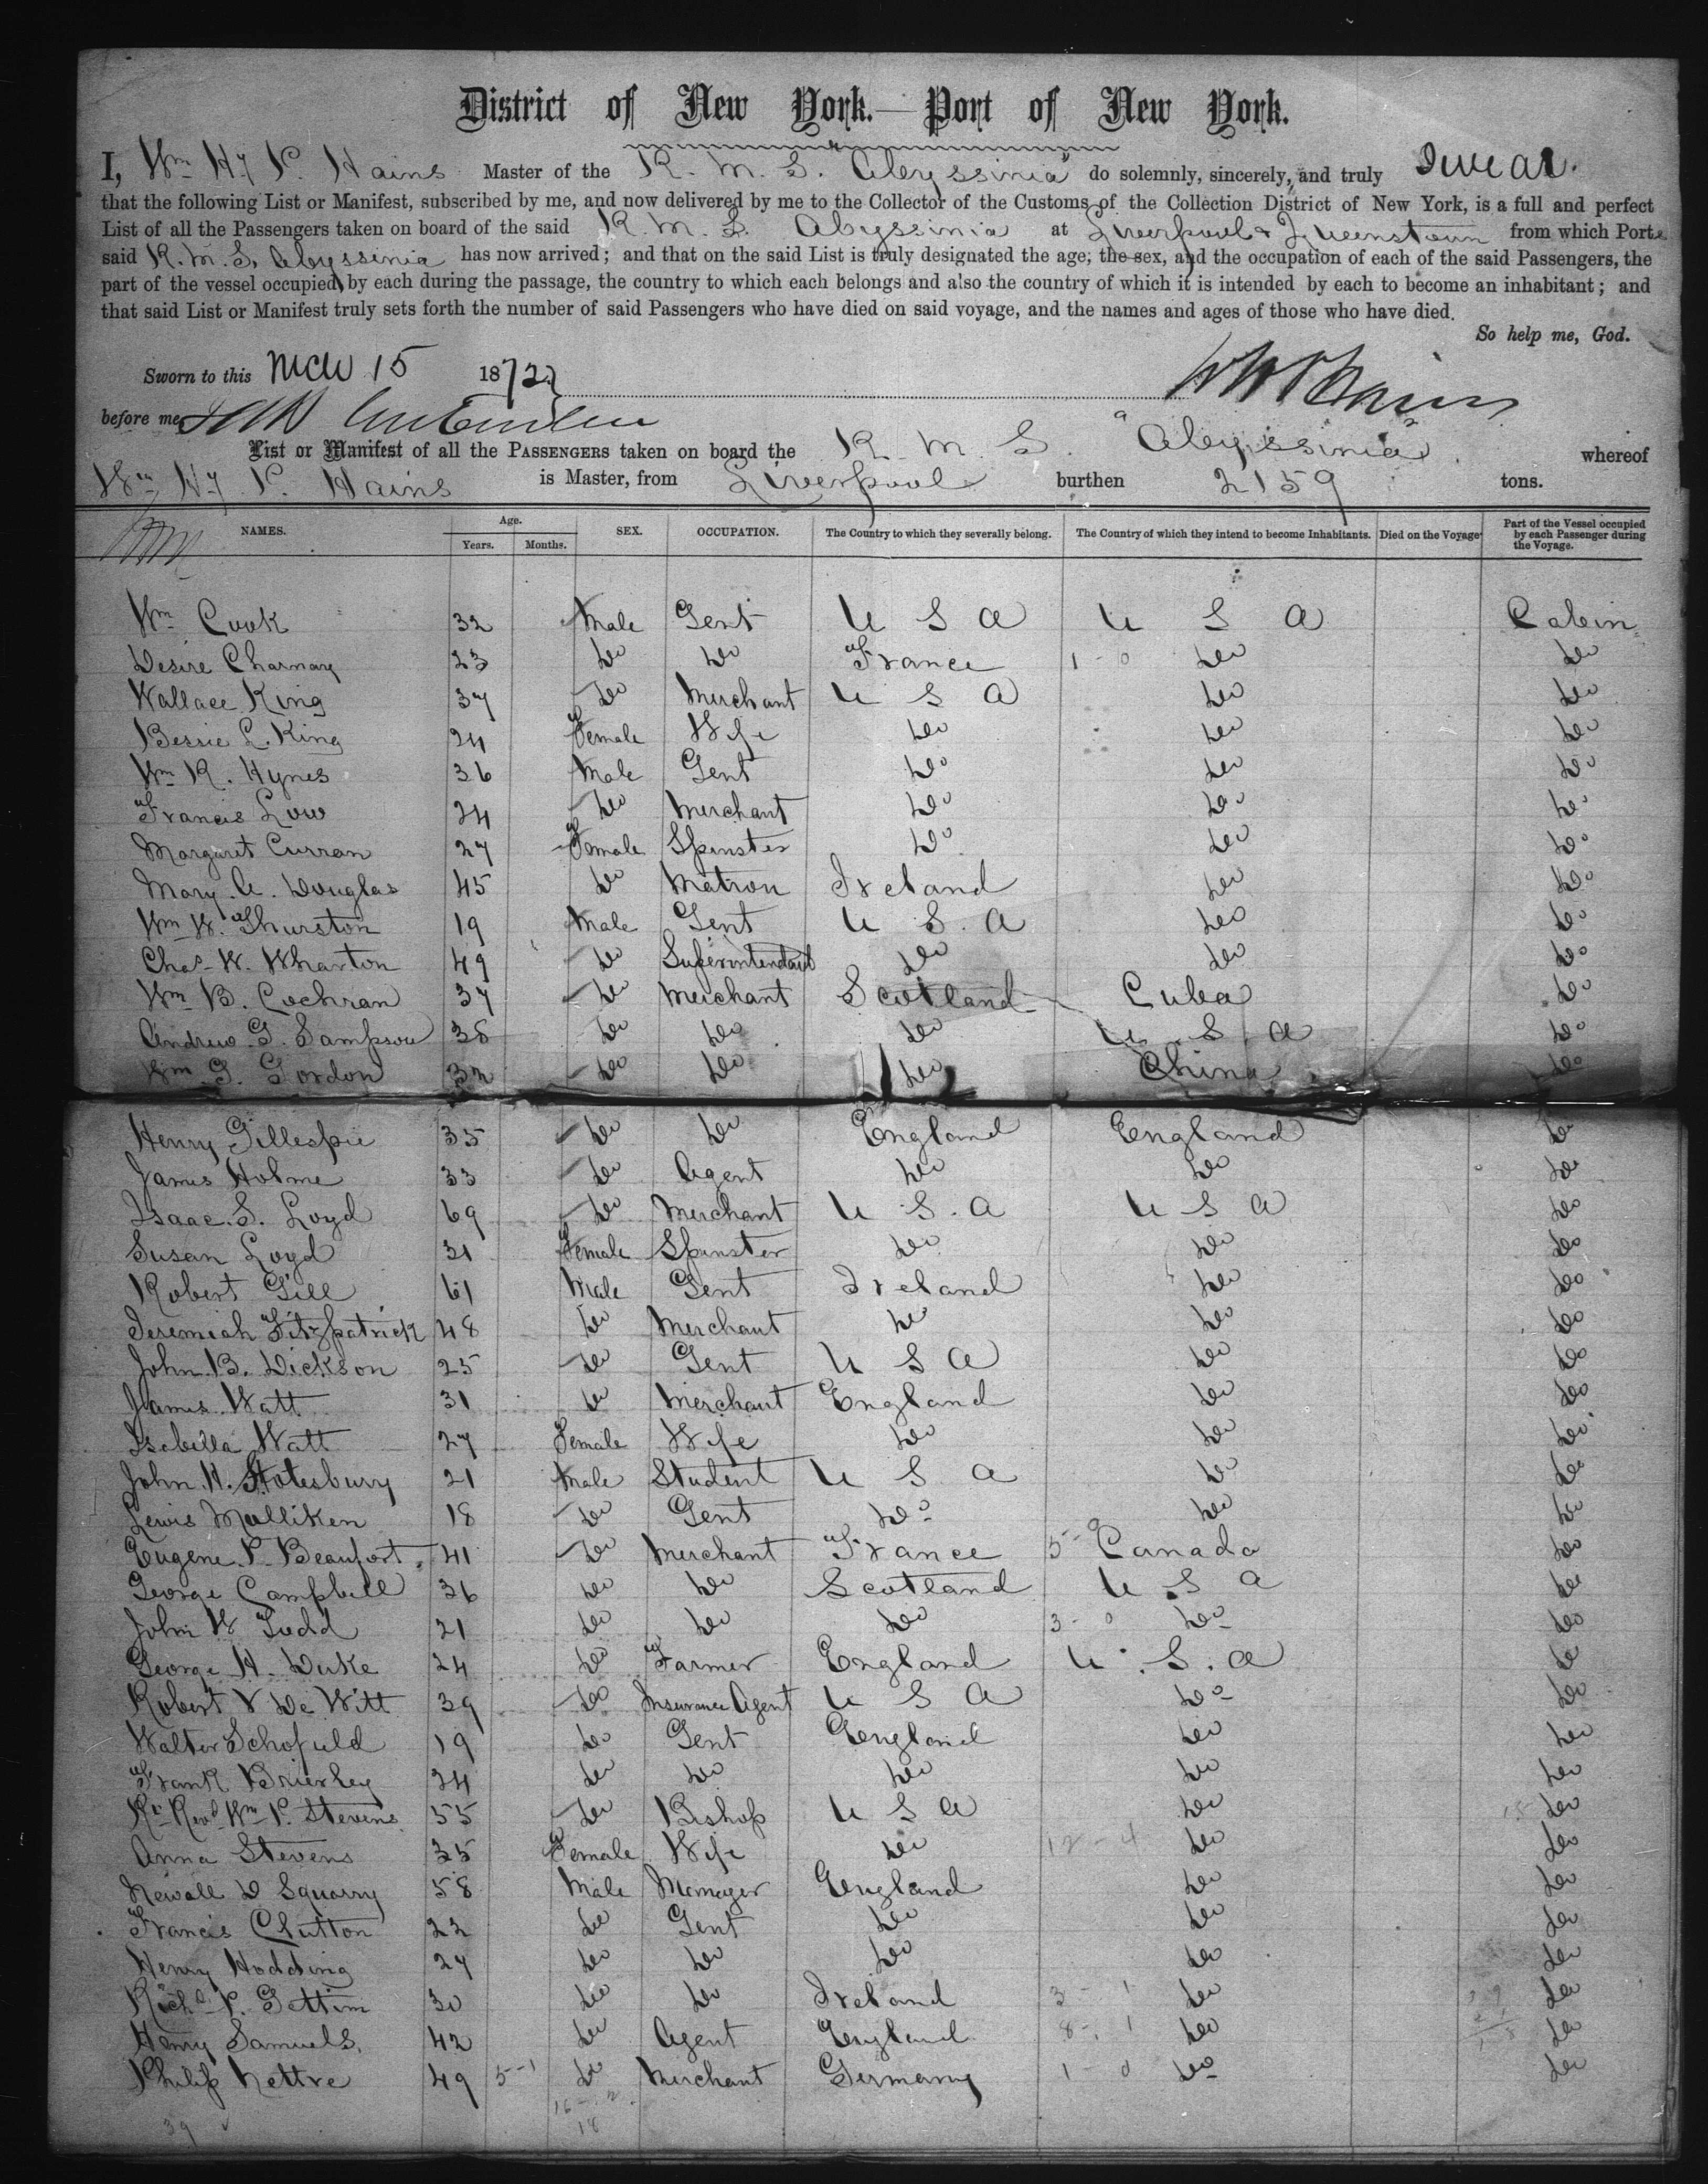 District of New York.—Port of New York.
I, Wm Hy P. Hains Master of the R. M. S. "Abyssinia" do solemnly, sincerely, and truly swear.
that the following List or Manifest, subscribed by me, and now delivered by me to the Collector of the Customs of the Collection District of New York, is a full and perfect
List of all the Passengers taken on board of the said R. M. S. Abyssinia at Liverpool & Queenstown from which Ports
said R. M. S. Abyssinia has now arrived; and that on the said List is truly designated the age; the sex, and the occupation of each of the said Passengers, the
part of the vessel occupied by each during the passage, the country to which each belongs and also the country of which it is intended by each to become an inhabitant; and
that said List or Manifest truly sets forth the number of said Passengers who have died on said voyage, and the names and ages of those who have died.
So help me, God.
Sworn to this 15 1872
before me
List or Manifest of all the PASSENGERS taken on board the R. M. S. "Abyssinia" whereof
Wm Hy P. Hains is Master, from Liverpool burthen 2159 tons.
NAMES. Age. Years. Months. SEX. OCCUPATION. The Country to which they severally belong. The Country of which they intend to become Inhabitants. Died on the Voyage Part of the Vessel occupied by each Passenger during the Voyage.
Wm Cook 32 Male Gent U S A U S A Cabin
Desire Charnay 23 Do Do France 1-0 Do Do
Wallace King 37 Do Merchant U S A Do Do
Bessie L. King 24 Female Wife Do Do Do
Wm R. Hynes 36 Male Gent Do Do Do
Francis Low 24 Do Merchant Do Do Do
Margaret Curran 27 Female Spinster Do Do Do
Mary. A. Douglas 45 Do Matron Ireland Do Do
Wm W. Thurston 19 Male Gent U S. A Do Do
Chas W. Wharton 49 Do Superintendant Do Do Do
Wm B. Cochran 37 Do Merchant Scotland Cuba Do
Andrew. G. Sampson 38 Do Do Do U. S. A Do
Wm G. Gordon Do Do Do China Do
Henry Gillespie 35 Do Do England England Do
James Holme 33 Do Agent Do Do Do
Isaac. S. Loyd 69 Do Merchant U. S. A U S A Do
Susan Loyd 31 Female Spinster Do Do Do
Robert Gill 61 Male Gent Ireland Do Do
Jeremiah Fitzpatrick 48 Do Merchant Do Do Do
John. B. Dickson 25 Do Gent U S A Do Do
James Watt 31 Do Merchant England Do Do
Isabella Watt 27 Female Wife Do Do Do
John. H. Stotesbury 21 Male Student U S A Do Do
Lewis Mulliken 18 Do Gent Do Do Do
Eugene. P. Beaufort 41 Do Merchant France 5-0 Canada Do
George Campbell 36 Do Do Scotland U S A Do
John W Tudd 21 Do Do Do 3-0 Do Do
George H. Duke 24 Do Farmer England U. S. A Do
Robert V De Witt 39 Do Insurance Agent U S A Do Do
Walter Schofield 19 Do Gent England Do Do
Frank Brierley 24 Do Do Do Do Do
Rt Revd Wm P. Stevens 55 Do Bishop U S A Do Do
Anna Stevens 35 Female Wife Do 12-4 Do Do
Newall D Squarry 58 Male Manager England Do Do
Francis Clutton 22 Do Gent Do Do Do
Henry Hodding 27 Do Do Do Do Do
Richd P. Gettim 30 Do Do Ireland 3-1 Do Do
Henry Samuels. 42 Do Agent England 8-1 Do Do
Philip Nettre 49 5-1 Do Merchant Germany 1-0 Do Do
39
18